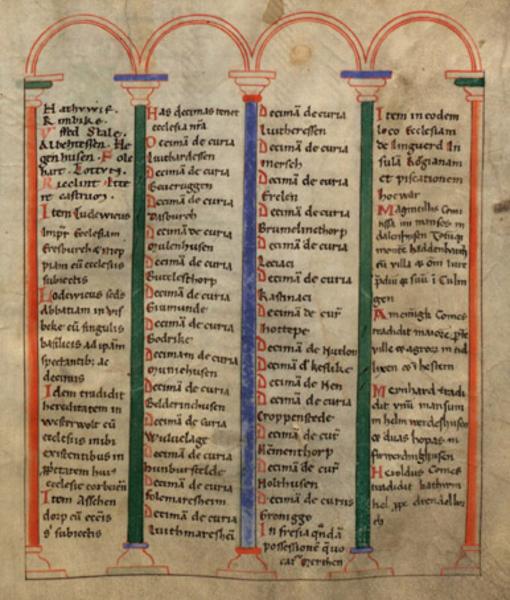 Hathuwic.
Rimbike.
ffed Stale.
Albehtessen. He
genhusen. Fole
hart. Cottun.
Ricelint
nt castruon.
Item Ludewicus
Impr Ecclesiam
Eresburch
piam cu ecclesiis
subiectis
Lodewicus sedis
Abbatiam in vis
beke cu singulis
basilicis ad ipam
spectantib; ac
decimis
Idem tradidit
hereditatem in
westerwolt cu
ecclesiis inibi
existentibus in
huius
ecclesie corbeien
Item Asschen
dorp cu ecciis
s' subiectis
Has decimas tenet
ecclesia nra
Decima de curia
Liuthardessen
Decima de curia
Beueruggen
Decima de curia
Dasburch
Decima de curia
Mulenhusen
Decima de curia
Butelesthorp
Decima de curia
Giumunde
Decima de curia
Godrike
Decimam de curia
Munichusen
Decima de curia
Bedderinchusen
Decima de curia
Widuelage
Decima de curia
hunburfelde
Decima de curia
folemaresheim
Decima de curia
Liuthmareshem
Decima de curia
Liutheressen
Decima de curia
Mersch
Decima de curia
Erclen
Decima de curia
Brumelincthorp
Decima de curia
Leciaci
Decima de curia
Rasinaci
Decima de cur
hottepe
Decima de Hurlon
Decima d' keslike
Decima de Hen
Decima de curia
Croppenstede
Decima de cur
Hementhorp
Decima de cur
Holthusen
Decima de curiis
Gronigge
In fresia qnda
possessione quo
Merthen
Item in eodem
loco Ecclesiam
de linguerd In
sula Rogianam
et piscationem
hocwar
Magnillis Comi
tissa mansos in
monte haddenberch
cu villa
gen
Amelungk Comes
tradidit
ville & agros in
Meinhard tradi
dit vnu mansum
in helmwerdeshusen
& duas hopas in
Herioldus Comes
tradidit hathum